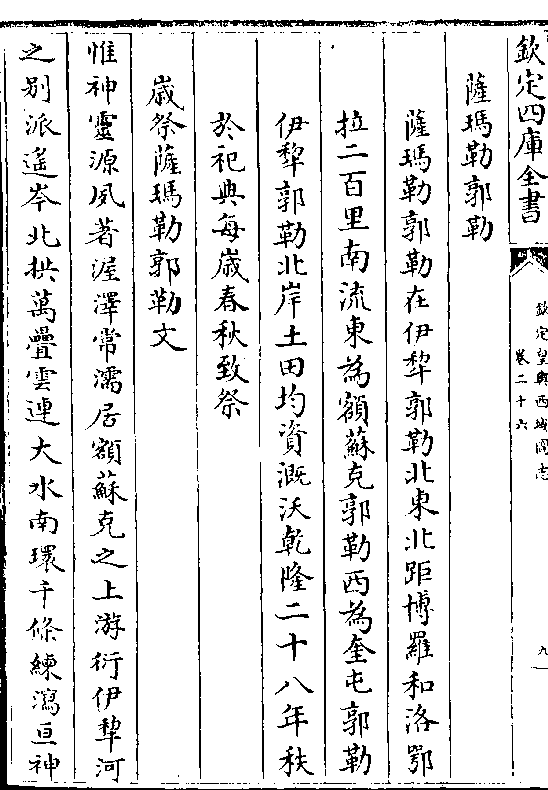 欽定四庫全書
欽定皇輿西域圖志
卷二十六
九
薩瑪勒郭勒
薩瑪勒郭勒在伊犂郭勒北東北距博羅和洛鄂
拉二百里南流東為額蘇克郭勒西為奎屯郭勒
伊犂郭勒北岸土田均資溉沃乾隆二十八年秩
於祀典每歲春秋致祭
歲祭薩瑪勒郭勒文
惟神靈源夙著渥澤常濡居額蘇克之上游衍伊犂河
之别派遙岑北拱萬疊雲連大水南環千條練瀉亘神